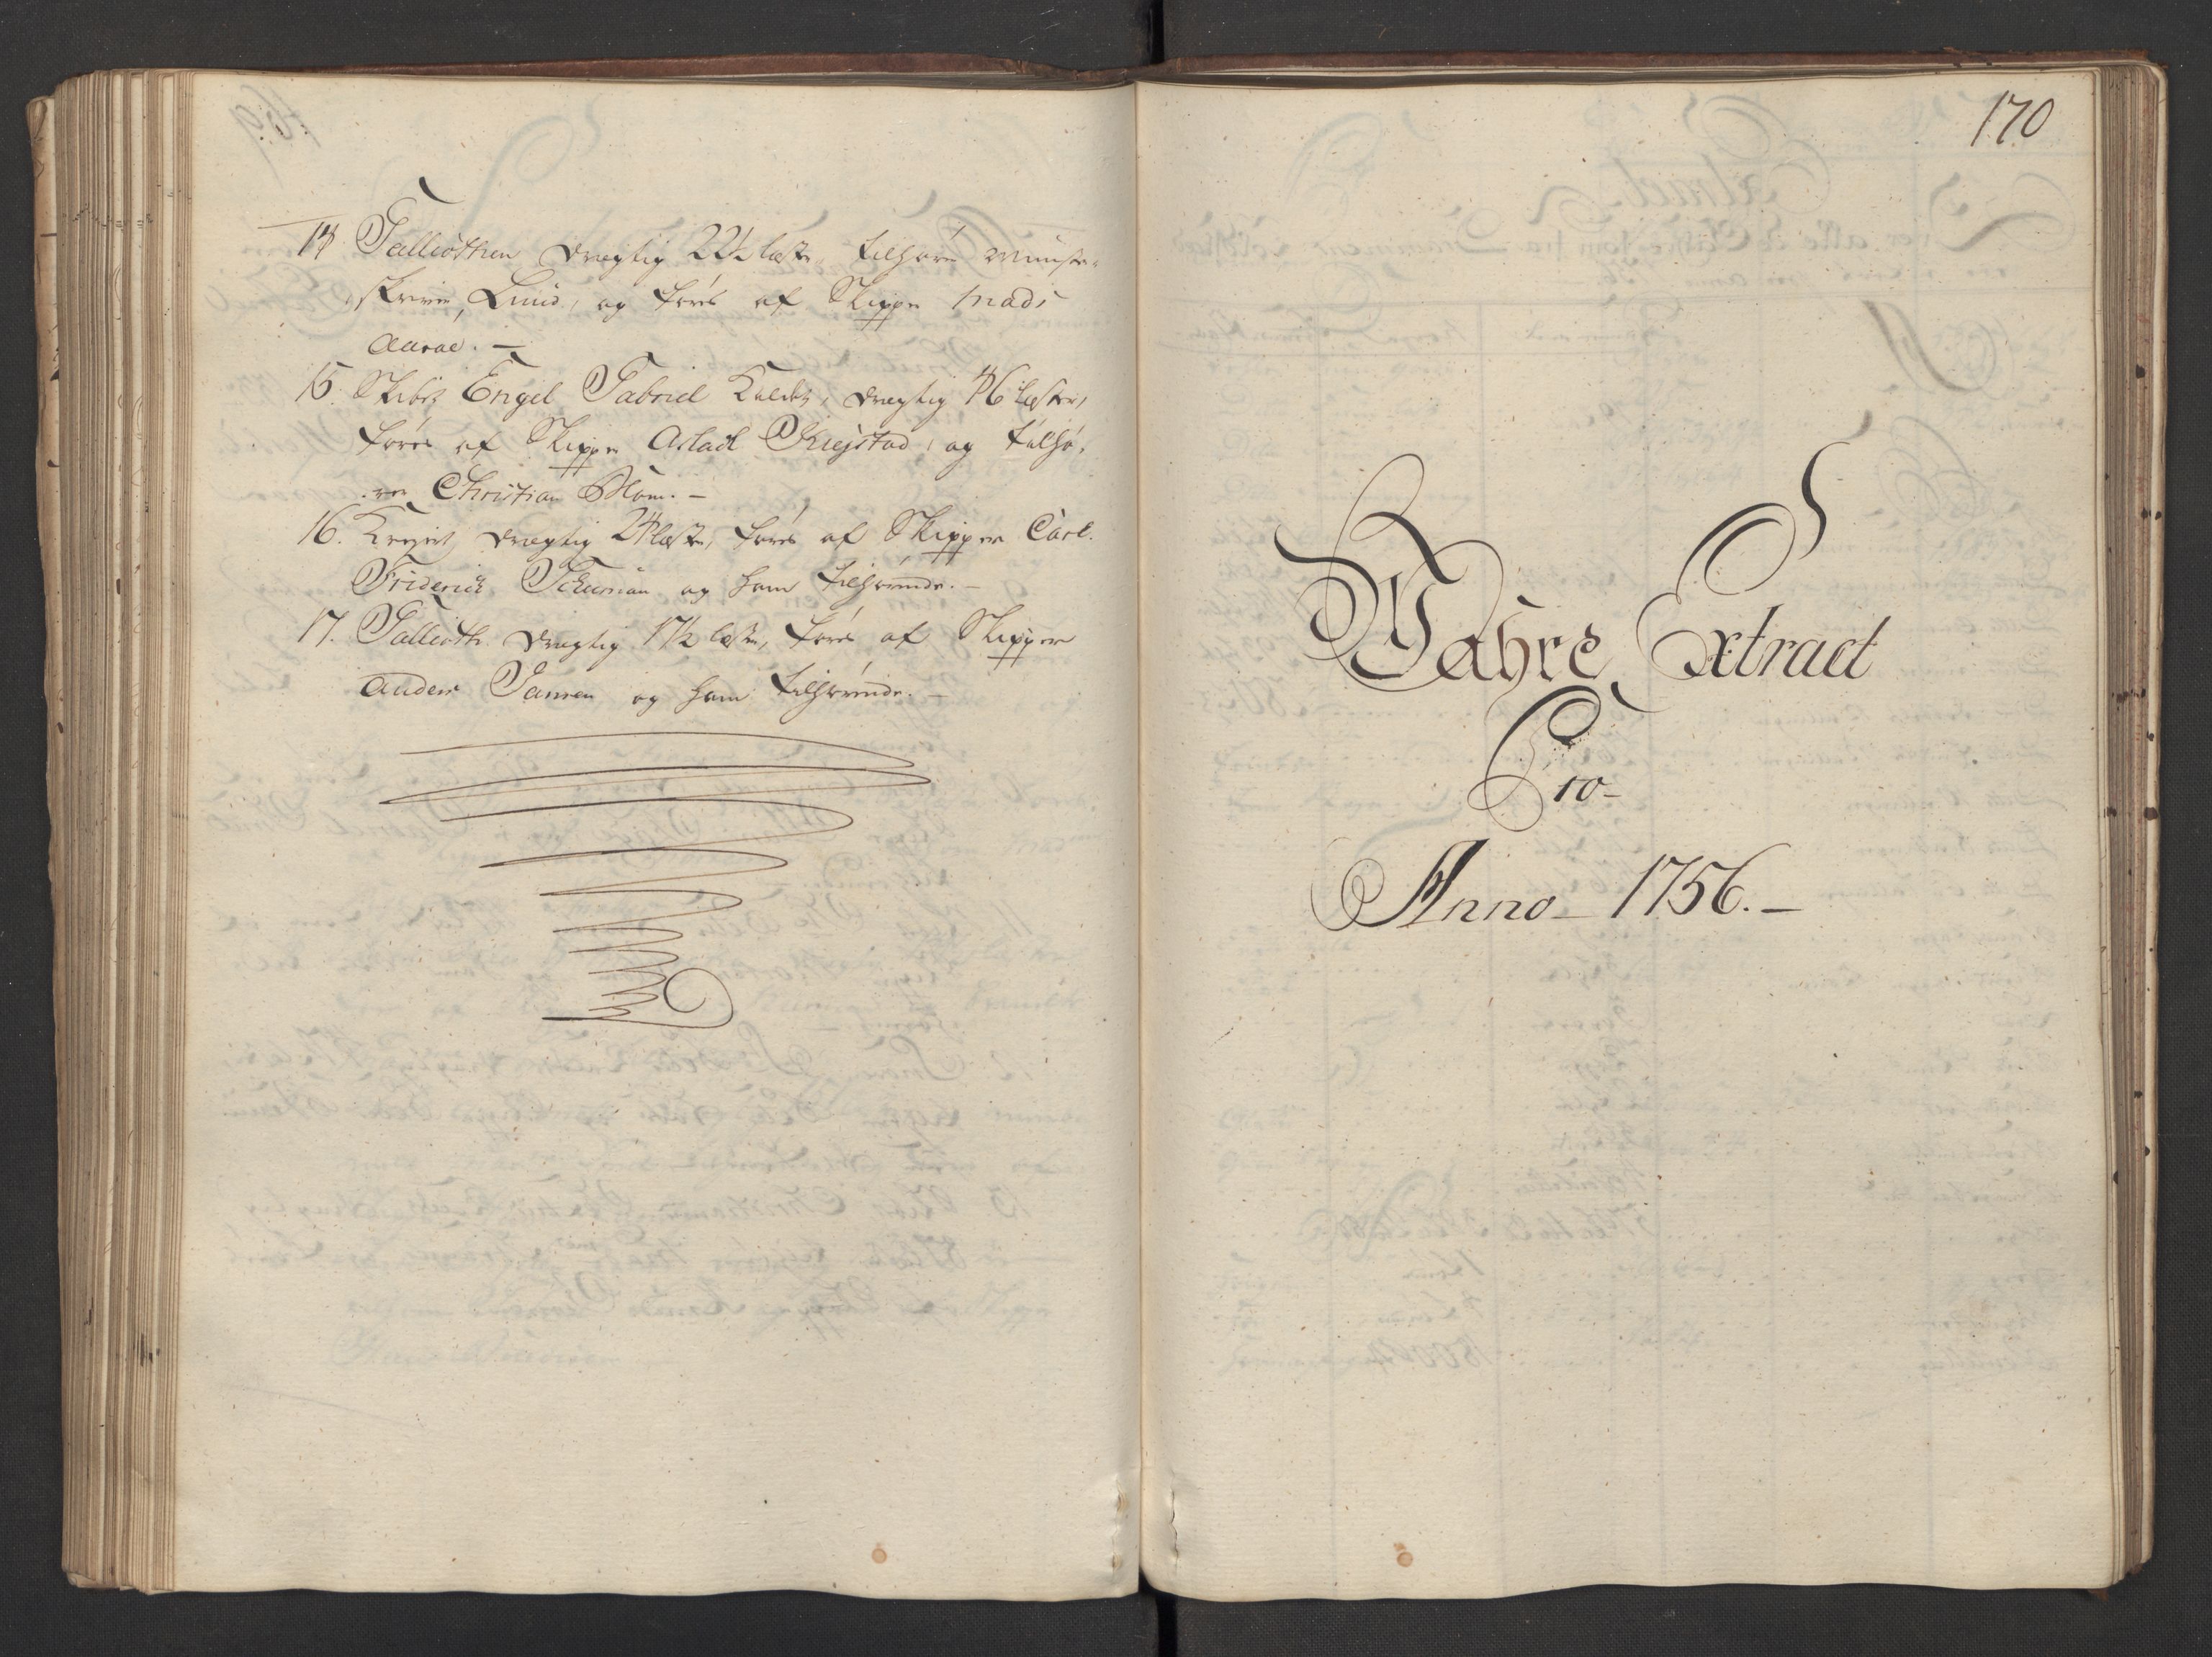 14. Galliothen drægtig 22½ læster, tilhører Mynster-
skriver Lund, og føres af Skipper Mads
Aaroe. —
15. Skibet Engel Gabriel kaldet, drægtig 46 læster,
føres af Skipper Aslach Griejstad, og tilhø-
rer Christian Blom. —
16. Krejert drægtig 24 læster, føres af Skipper Carl
Friderich Schuman og ham tilhørende. —
17. Gallioth drægtig 17½ læster, føres af Skipper
Anders Jansen og ham tilhørende. —
170
Wahre Extract
Pro
Anno 1756. —